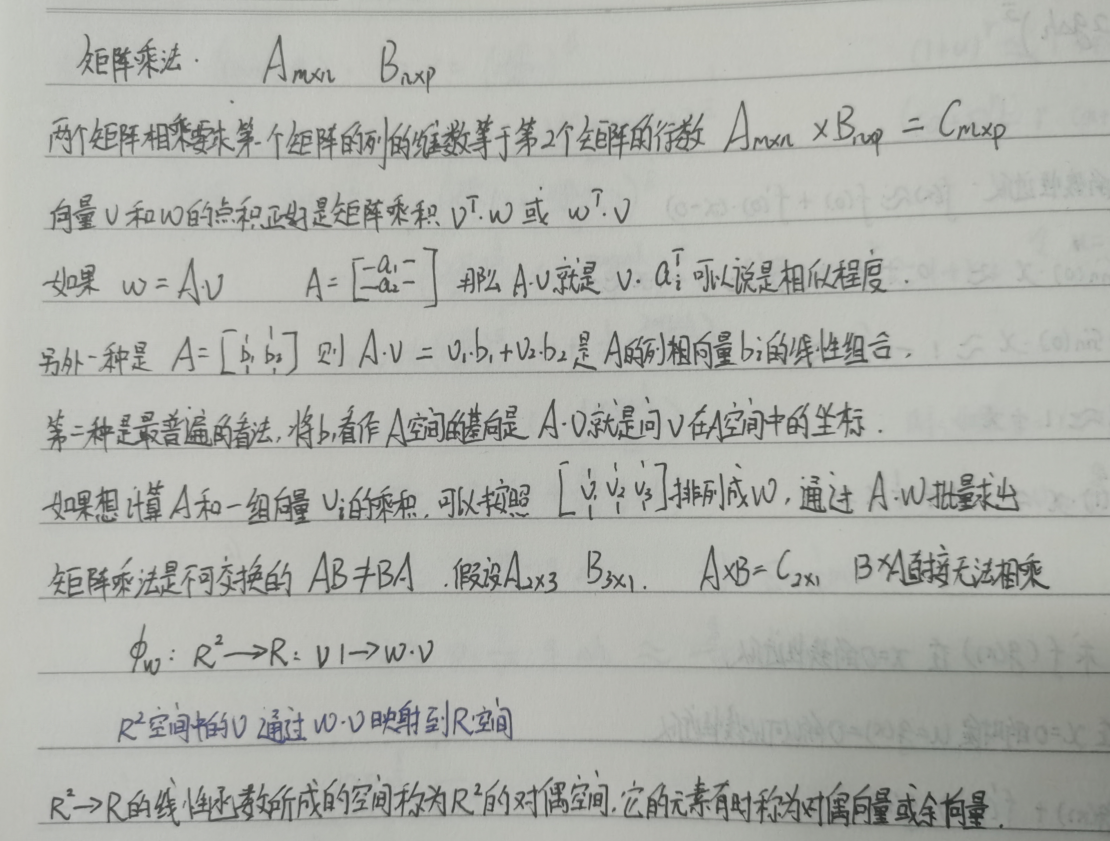 矩阵乘法. A_{m×n} B_{n×p}
两个矩阵相乘要求第一个矩阵的列的维数等于第2个矩阵的行数 A_{m×n} × B_{n×p} = C_{m×p}
向量 v 和 w 的点积正好是矩阵乘积 v^T·w 或 w^T·v
如果 w = A·v A = [-a₁- -a₂-] 那么 A·v 就是 v·a_i^T 可以说是相似程度.
另外一种是 A = [b₁ b₂] 则 A·v = v₁·b₁+v₂·b₂ 是 A的列相向量 b_i 的线性组合.
第二种是最普遍的看法, 将b_i看作A空间的基向是 A·v 就是问 v 在A空间中的坐标.
如果想计算 A 和一组向量 v_i 的乘积, 可以按照 [v₁ v₂ v₃] 排列成W, 通过 A·W 批量求出
矩阵乘法是不可交换的 AB≠BA. 假设A_{2×3} B_{3×1}. A×B=C_{2×1} B×A直接无法相乘
ϕ_w: R²→R: v ↦ w·v
R²空间中的v 通过 w·v 映射到R空间
R²→R的线性函数所成的空间称为R²的对偶空间. 它的元素有时称为对偶向量或余向量.